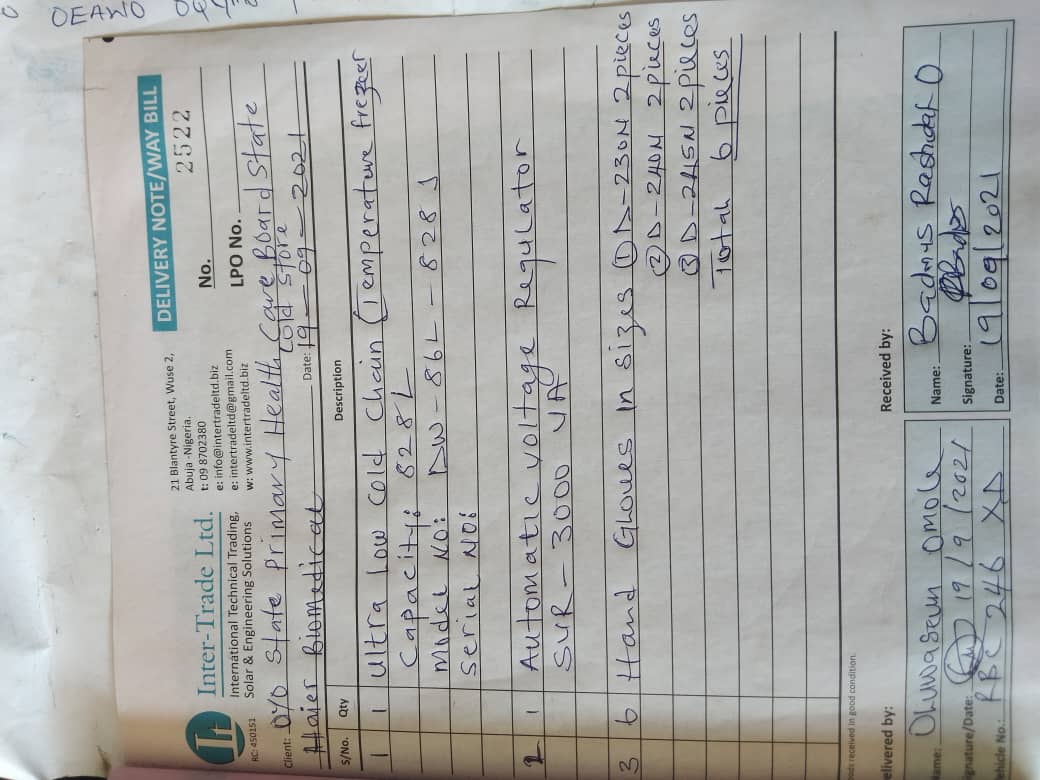 OEAWO
Inter-Trade Ltd.
International Technical Trading,
Solar & Engineering Solutions
RC: 450151
21 Blantyre Street, Wuse 2,
Abuja -Nigeria.
t: 09 8702380
e: info@intertradeltd.biz
e: intertradeltd@gmail.com
w: www.intertradeltd.biz
DELIVERY NOTE/WAY BILL
2522
No.
LPO No.
Client: OYO State primary Health Care Board State
Cold Store
Haier Biomedical Date: 19-09-2021
S/No. Qty Description
1 1 Ultra Low Cold Chain (Temperature frezeer
Capacity: 828L
Model NO: DW-86L-828J
Serial NO:
2 1 Automatic Voltage Regulator
SVR-3000 VA
3 6 Hand Gloves In sizes ① D-230N 2 pieces
② D-240N 2 pieces
③ D-245N 2 pieces
Total 6 pieces
ds received in good condition.
elivered by:
me: Oluwaseun Omole
nature/Date: 19/9/2021
hicle No.: RBC 246 XD
Received by:
Name: Badmus Rashidat O
Signature:
Date: 19/09/2021